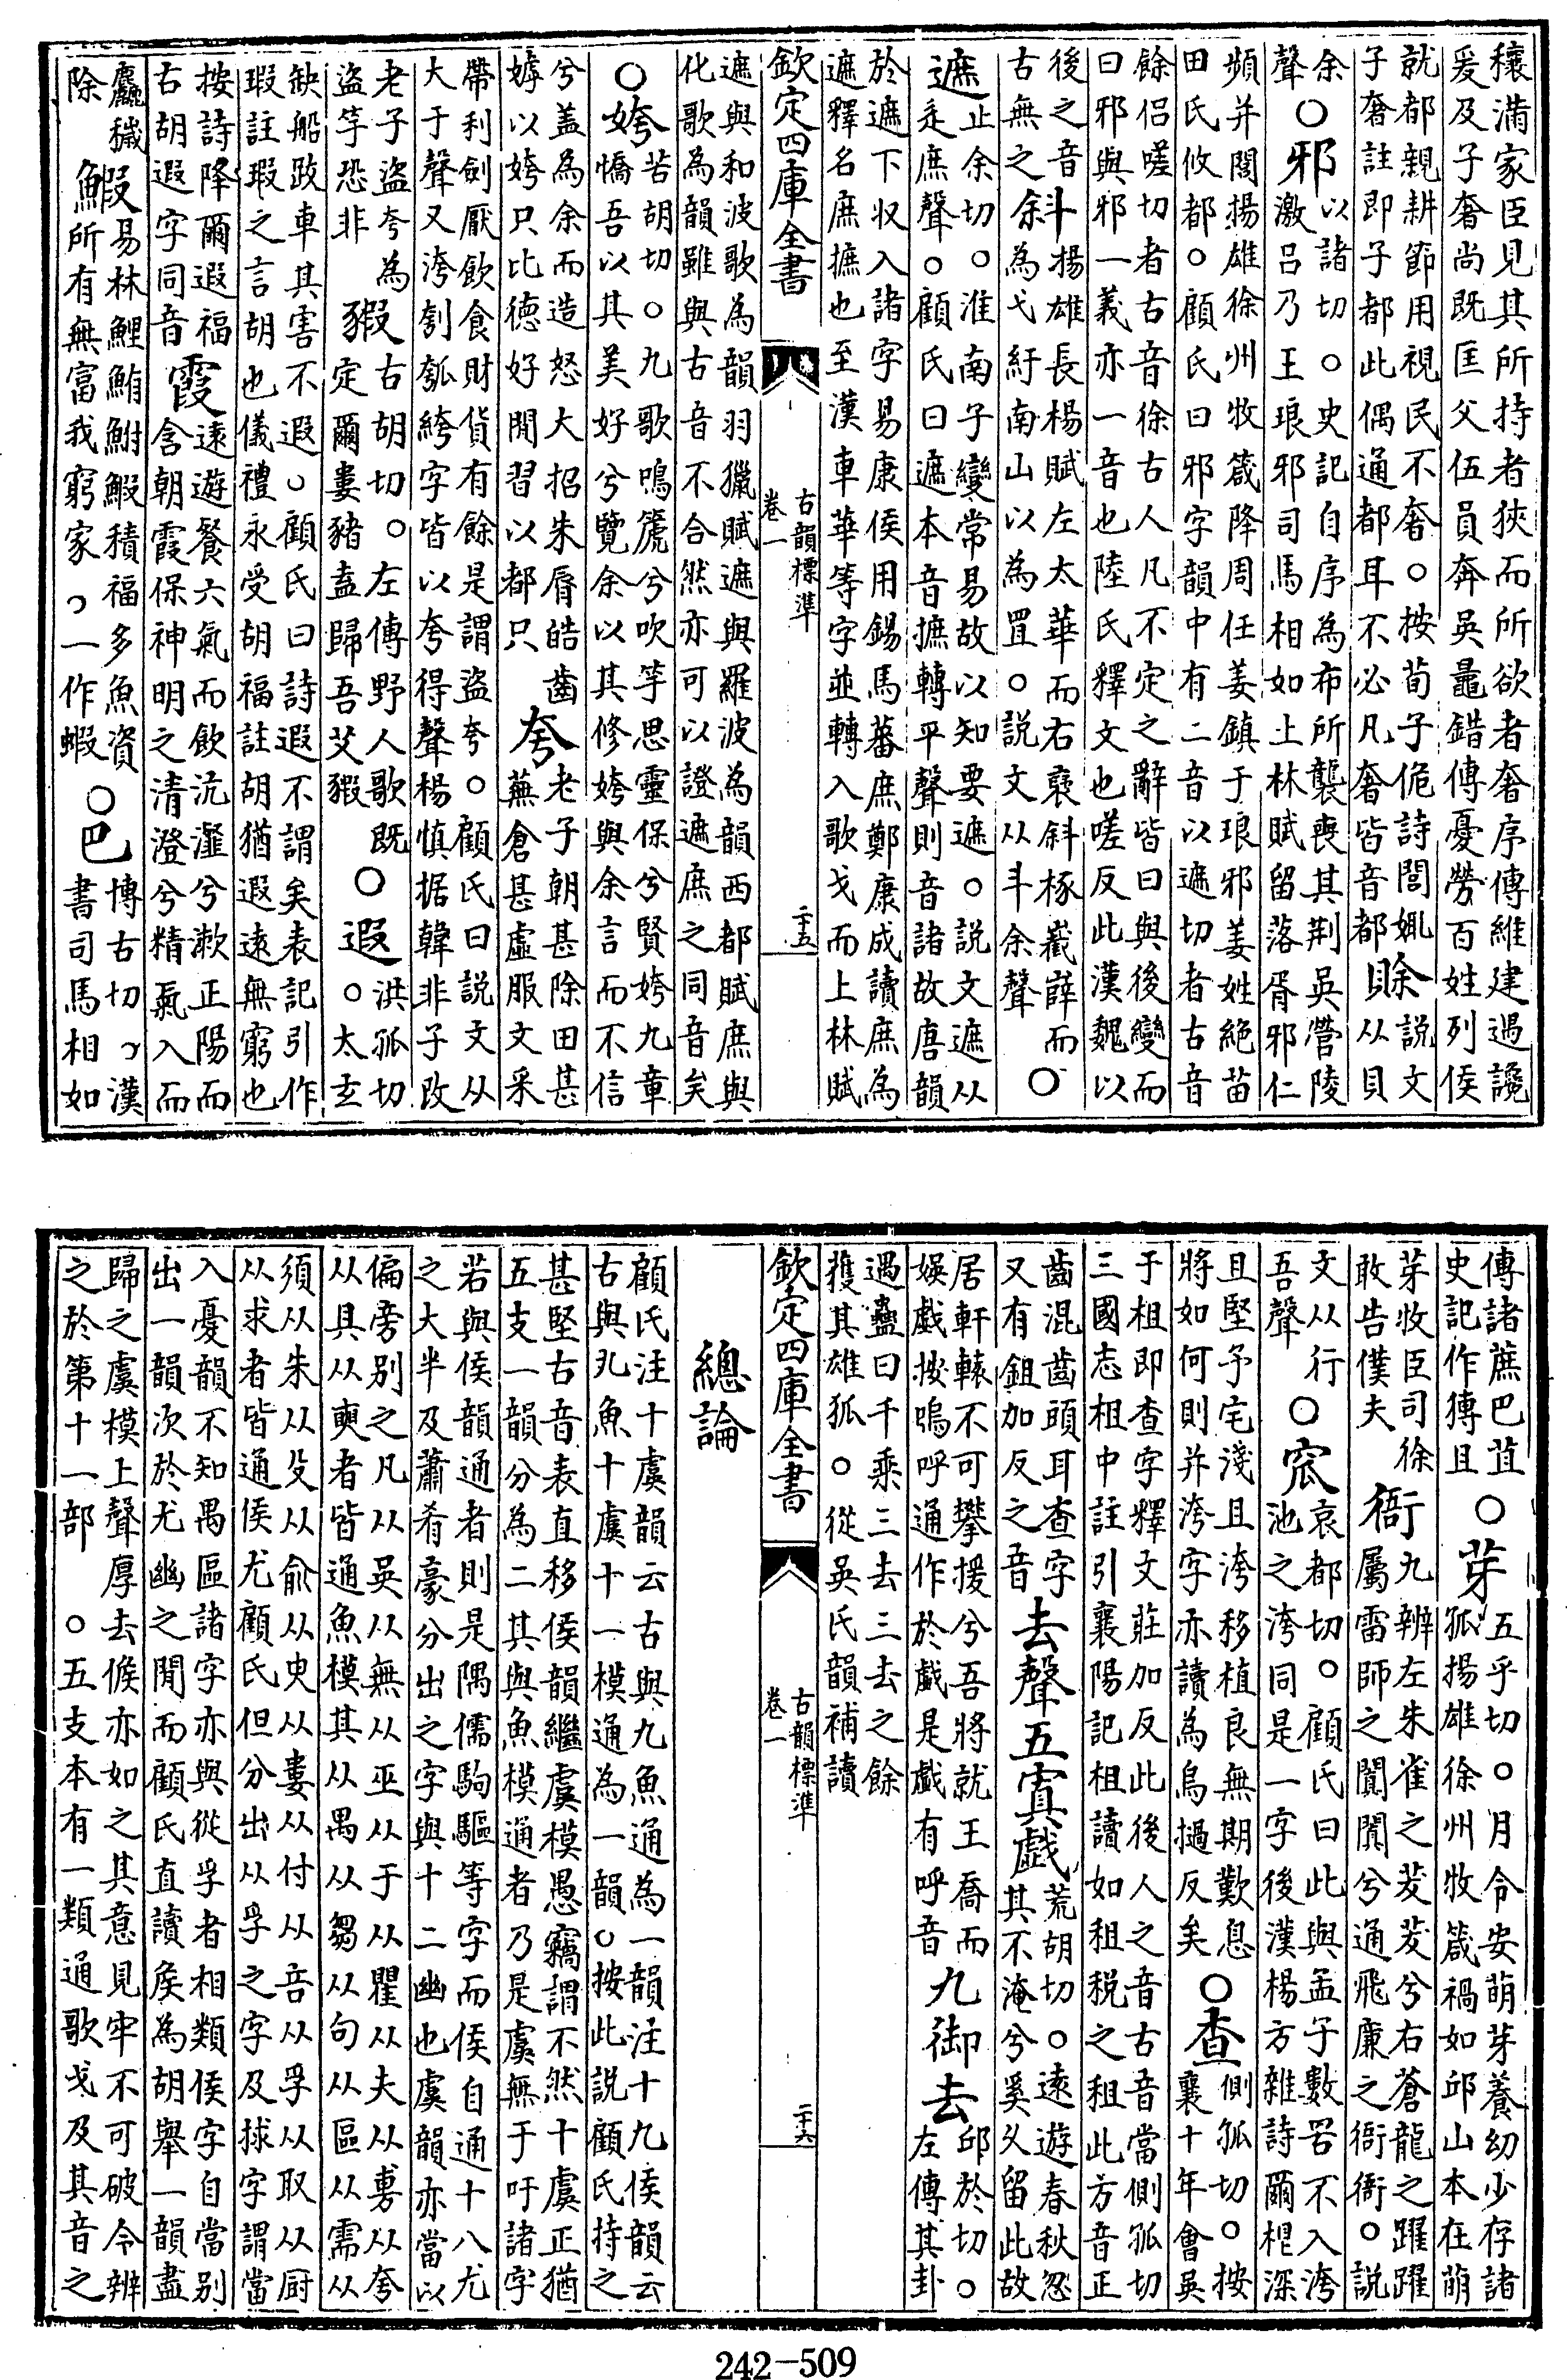 穰滿家臣見其所持者狹而所欲者奢序傳維建遇讒
爰及子奢尚既匡父伍員奔吳鼂錯傳憂勞百姓列侯
就都親耕節用視民不奢○按荀子佹詩閭娵
子奢註即子都此偶通都耳不必凡奢皆音都賖說文从貝
余聲○邪以諸切○史記自序為布所襲喪其荆吳營陵
激呂乃王琅邪司馬相如上林賦留落胥邪仁
頻并閭揚雄徐州牧箴降周任姜鎮于琅邪姜姓絕苗
田氏攸都○顧氏曰邪字韻中有二音以遮切者古音
餘侣嗟切者古音徐古人凡不定之辭皆曰與後變而
曰邪與邪一義亦一音也陸氏釋文也嗟反此漢魏以
後之音斜揚雄長楊賦左太華而右襃斜椓嶻嶭而
古無之余為弋紆南山以為罝○説文从斗余聲○
遮止余切○淮南子變常易故以知要遮○説文遮从
辵庶聲○顧氏曰遮本音摭轉平聲則音諸故唐韻
於遮下収入諸字易康侯用錫馬蕃庶鄭康成讀庶為
遮釋名庶摭也至漢車華等字並轉入歌戈而上林賦
欽定四庫全書
古韻標準
卷一
二十五
遮與和波歌為韻羽獵賦遮與羅波為韻西都賦庶與
化歌為韻雖與古音不合然亦可以證遮庶之同音矣
○姱苦胡切○九歌鳴箎兮吹竽思靈保兮賢姱九章
憍吾以其美好兮覽余以其修姱與余言而不信
兮蓋為余而造怒大招朱脣皓齒
嫭以姱只比德好閒習以都只夸老子朝甚除田甚
蕪倉甚虛服文采
帶利劍厭飲食財貨有餘是謂盜夸○顧氏曰説文从
大于聲又洿刳瓠絝字皆以夸得聲楊慎据韓非子改
老子盜夸為
盜竽恐非豭古胡切○左傳野人歌既
定爾婁豬盍歸吾艾豭○遐洪孤切
○太玄
缺船跂車其害不遐○顧氏曰詩遐不謂矣表記引作
瑕註瑕之言胡也儀禮永受胡福註胡猶遐遠無窮也
按詩降爾遐福
古胡遐字同音霞遠遊餐六氣而飲沆瀣兮漱正陽而
含朝霞保神明之清澄兮精氣入而
麤穢
除鰕易林鯉鮪鮒鰕積福多魚資
所有無富我窮家○一作蝦○巴博古切○漢
書司馬相如
傳諸蔗巴苴
史記作猼且○芽五乎切○月令安萌芽養幼少存諸
孤揚雄徐州牧箴禍如邱山本在萌
芽牧臣司徐
敢告僕夫衙九辨左朱雀之茇茇兮右蒼龍之躍躍
屬雷師之闐闐兮通飛廉之衙衙○説
文从行
吾聲○窊哀都切○顧氏曰此與孟子數罟不入洿
池之洿同是一字後漢楊方雜詩爾根深
且堅予宅淺且洿移植良無期歎息
將如何則并洿字亦讀為烏撾反矣○查側孤切○按
襄十年會吳
于柤即查字釋文莊加反此後人之音古音當側孤切
三國志柤中註引襄陽記柤讀如租税之租此方音正
齒混齒頭耳查字
又有鉏加反之音去聲五寘戲荒胡切○遠遊春秋忽
其不淹兮奚久留此故
居軒轅不可攀援兮吾將就王喬而
娛戲按嗚呼通作於戲是戲有呼音九御去邱於切○
左傳其卦
遇蠱曰千乘三去三去之餘
獲其雄狐○從吳氏韻補讀
欽定四庫全書
古韻標準
卷一
二十六
總論
顧氏注十虞韻云古與九魚通為一韻注十九侯韻云
古與九魚十虞十一模通為一韻○按此説顧氏持之
甚堅古音表直移侯韻繼虞模愚竊謂不然十虞正猶
五支一韻分為二其與魚模通者乃是虞無于吁諸字
若與侯韻通者則是隅儒駒驅等字而侯自通十八尤
之大半及蕭肴豪分出之字與十二幽也虞韻亦當以
偏旁别之凡从吳从無从巫从于从瞿从夫从尃从夸
从具从䎡者皆通魚模其从禺从芻从句从區从需从
須从朱从殳从俞从臾从婁从付从㕻从孚从取从厨
从求者皆通侯尤顧氏但分出从孚之字及捄字謂當
入憂韻不知禺區諸字亦與從孚者相類侯字自當别
出一韻次於尤幽之閒而顧氏直讀矦為胡舉一韻盡
歸之虞模上聲厚去候亦如之其意見牢不可破今辨
之於第十一部○五支本有一類通歌戈及其音之
242-509